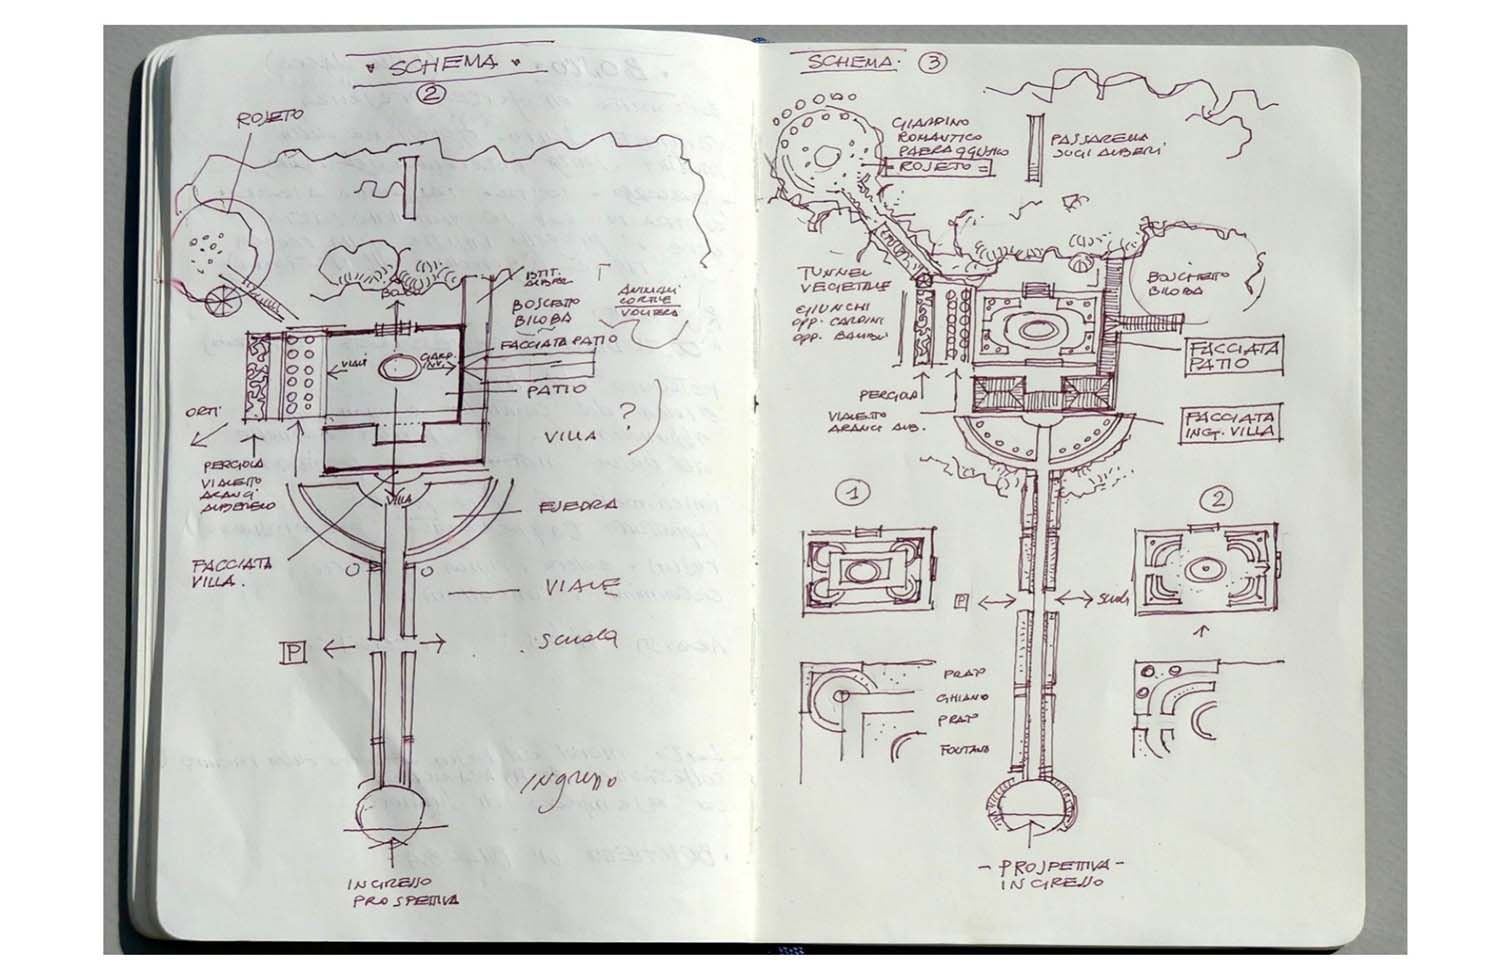 SCHEMA
2
ROSETO
BOSCO
ISTIT.
BOSCETTO
BILOBA
ANIMALI
CORTILE
VOLIERA
FACCIATA PATIO
VIALI
GIARD.
PATIO
ORTI
?
VILLA
PERGOLA
VIALETTO
ARANCI
VILLA
ESEDRA
FACCIATA
VILLA.
VIALE
P
scuola
Ingresso
INGRESSO
PROSPETTIVA
SCHEMA. 3
GIARDINO
ROMANTICO
ROSETO =
PASSARELLA
SUGLI ALBERI
TUNNEL
VEGETALE
GIUNCHI
OPP. CARDINI
OPP. BAMBÙ
BOSCHETTO
BILOBA
FACCIATA
PATIO
PERGOLA
VIALETTO
ARANCI AUB.
FACCIATA
INGR. VILLA
1
2
P
Scuola
PRATO
GHIAINO
PRATO
FONTANA
- PROSPETTIVA -
INGRESSO